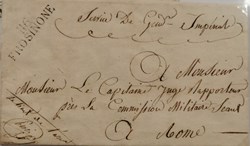 116
FROSINONE
Service De Gend.rie Impériale
A Monsieur
Monsieur Le Capitaine Juge Rapporteur
près la Commission Militaire
à Rome